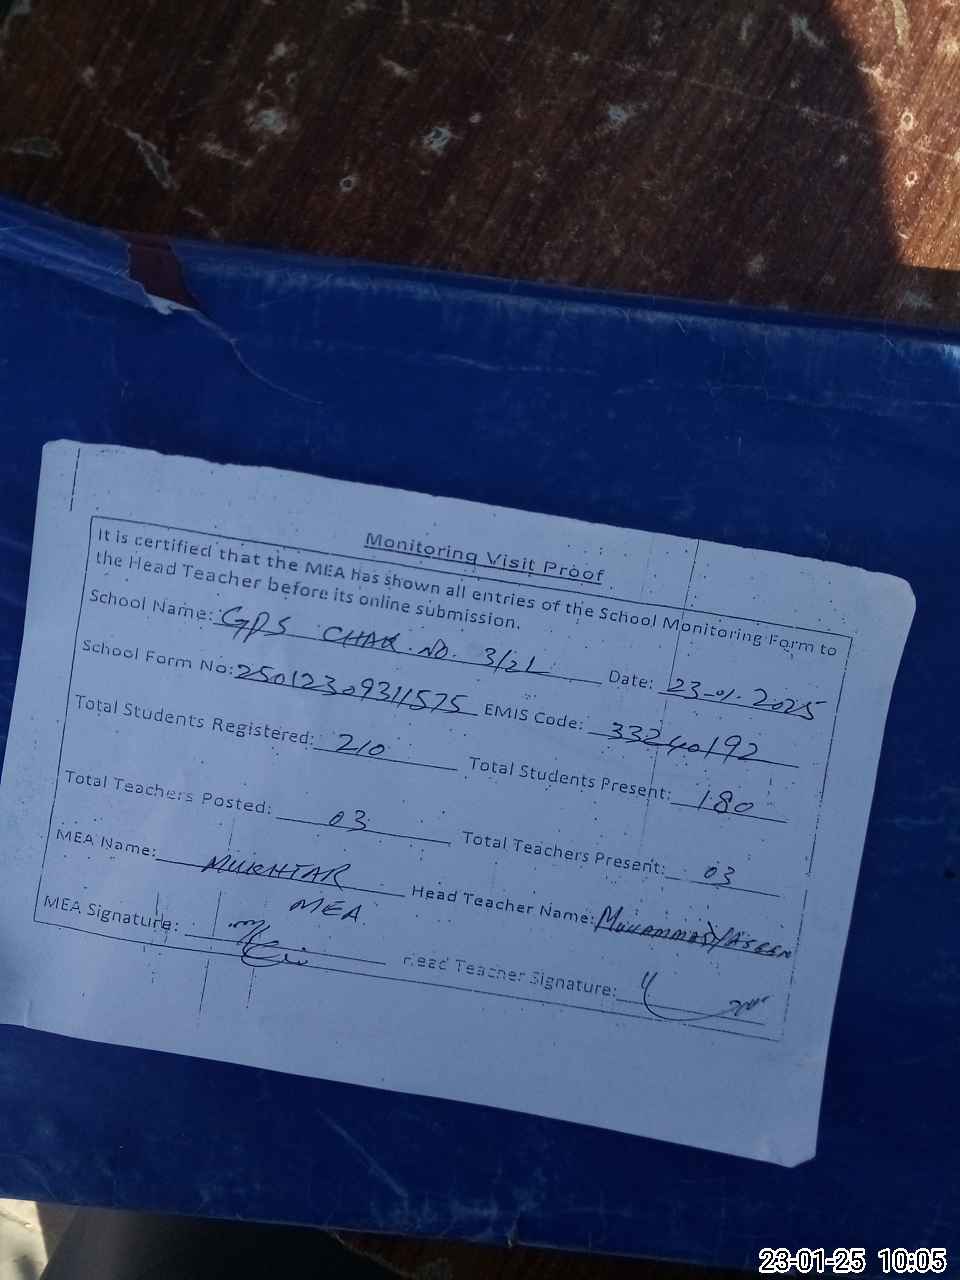 Monitoring Visit Proof
It is certified that the MEA has shown all entries of the School Monitoring Form to
the Head Teacher before its online submission.
School Name: GPS CHAK NO. 3/2L Date: 23-01-2025
School Form No: 25012309311575 EMIS Code: 33240192
Total Students Registered: 210 Total Students Present: 180
Total Teachers Posted: 03 Total Teachers Present: 03
MEA Name: MUKHTAR Head Teacher Name: MUHAMMAD YASEEN
MEA
MEA Signature: Head Teacher Signature:
23-01-25 10:05